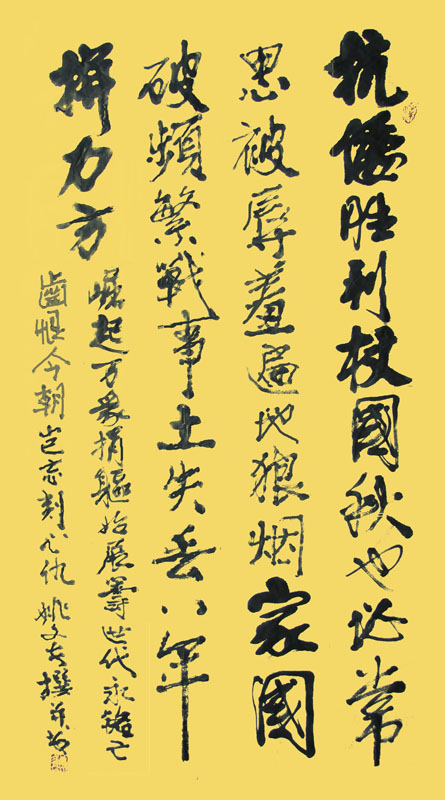 抗倭胜利杖國秋也必常
思被辱羞遍地狼烟家國
破頻繁戰事土失丢八年
拼力方
崛起万衆捐軀始展籌世代永銘亡
齒恨今朝岂忘刻心仇姚文撰并书